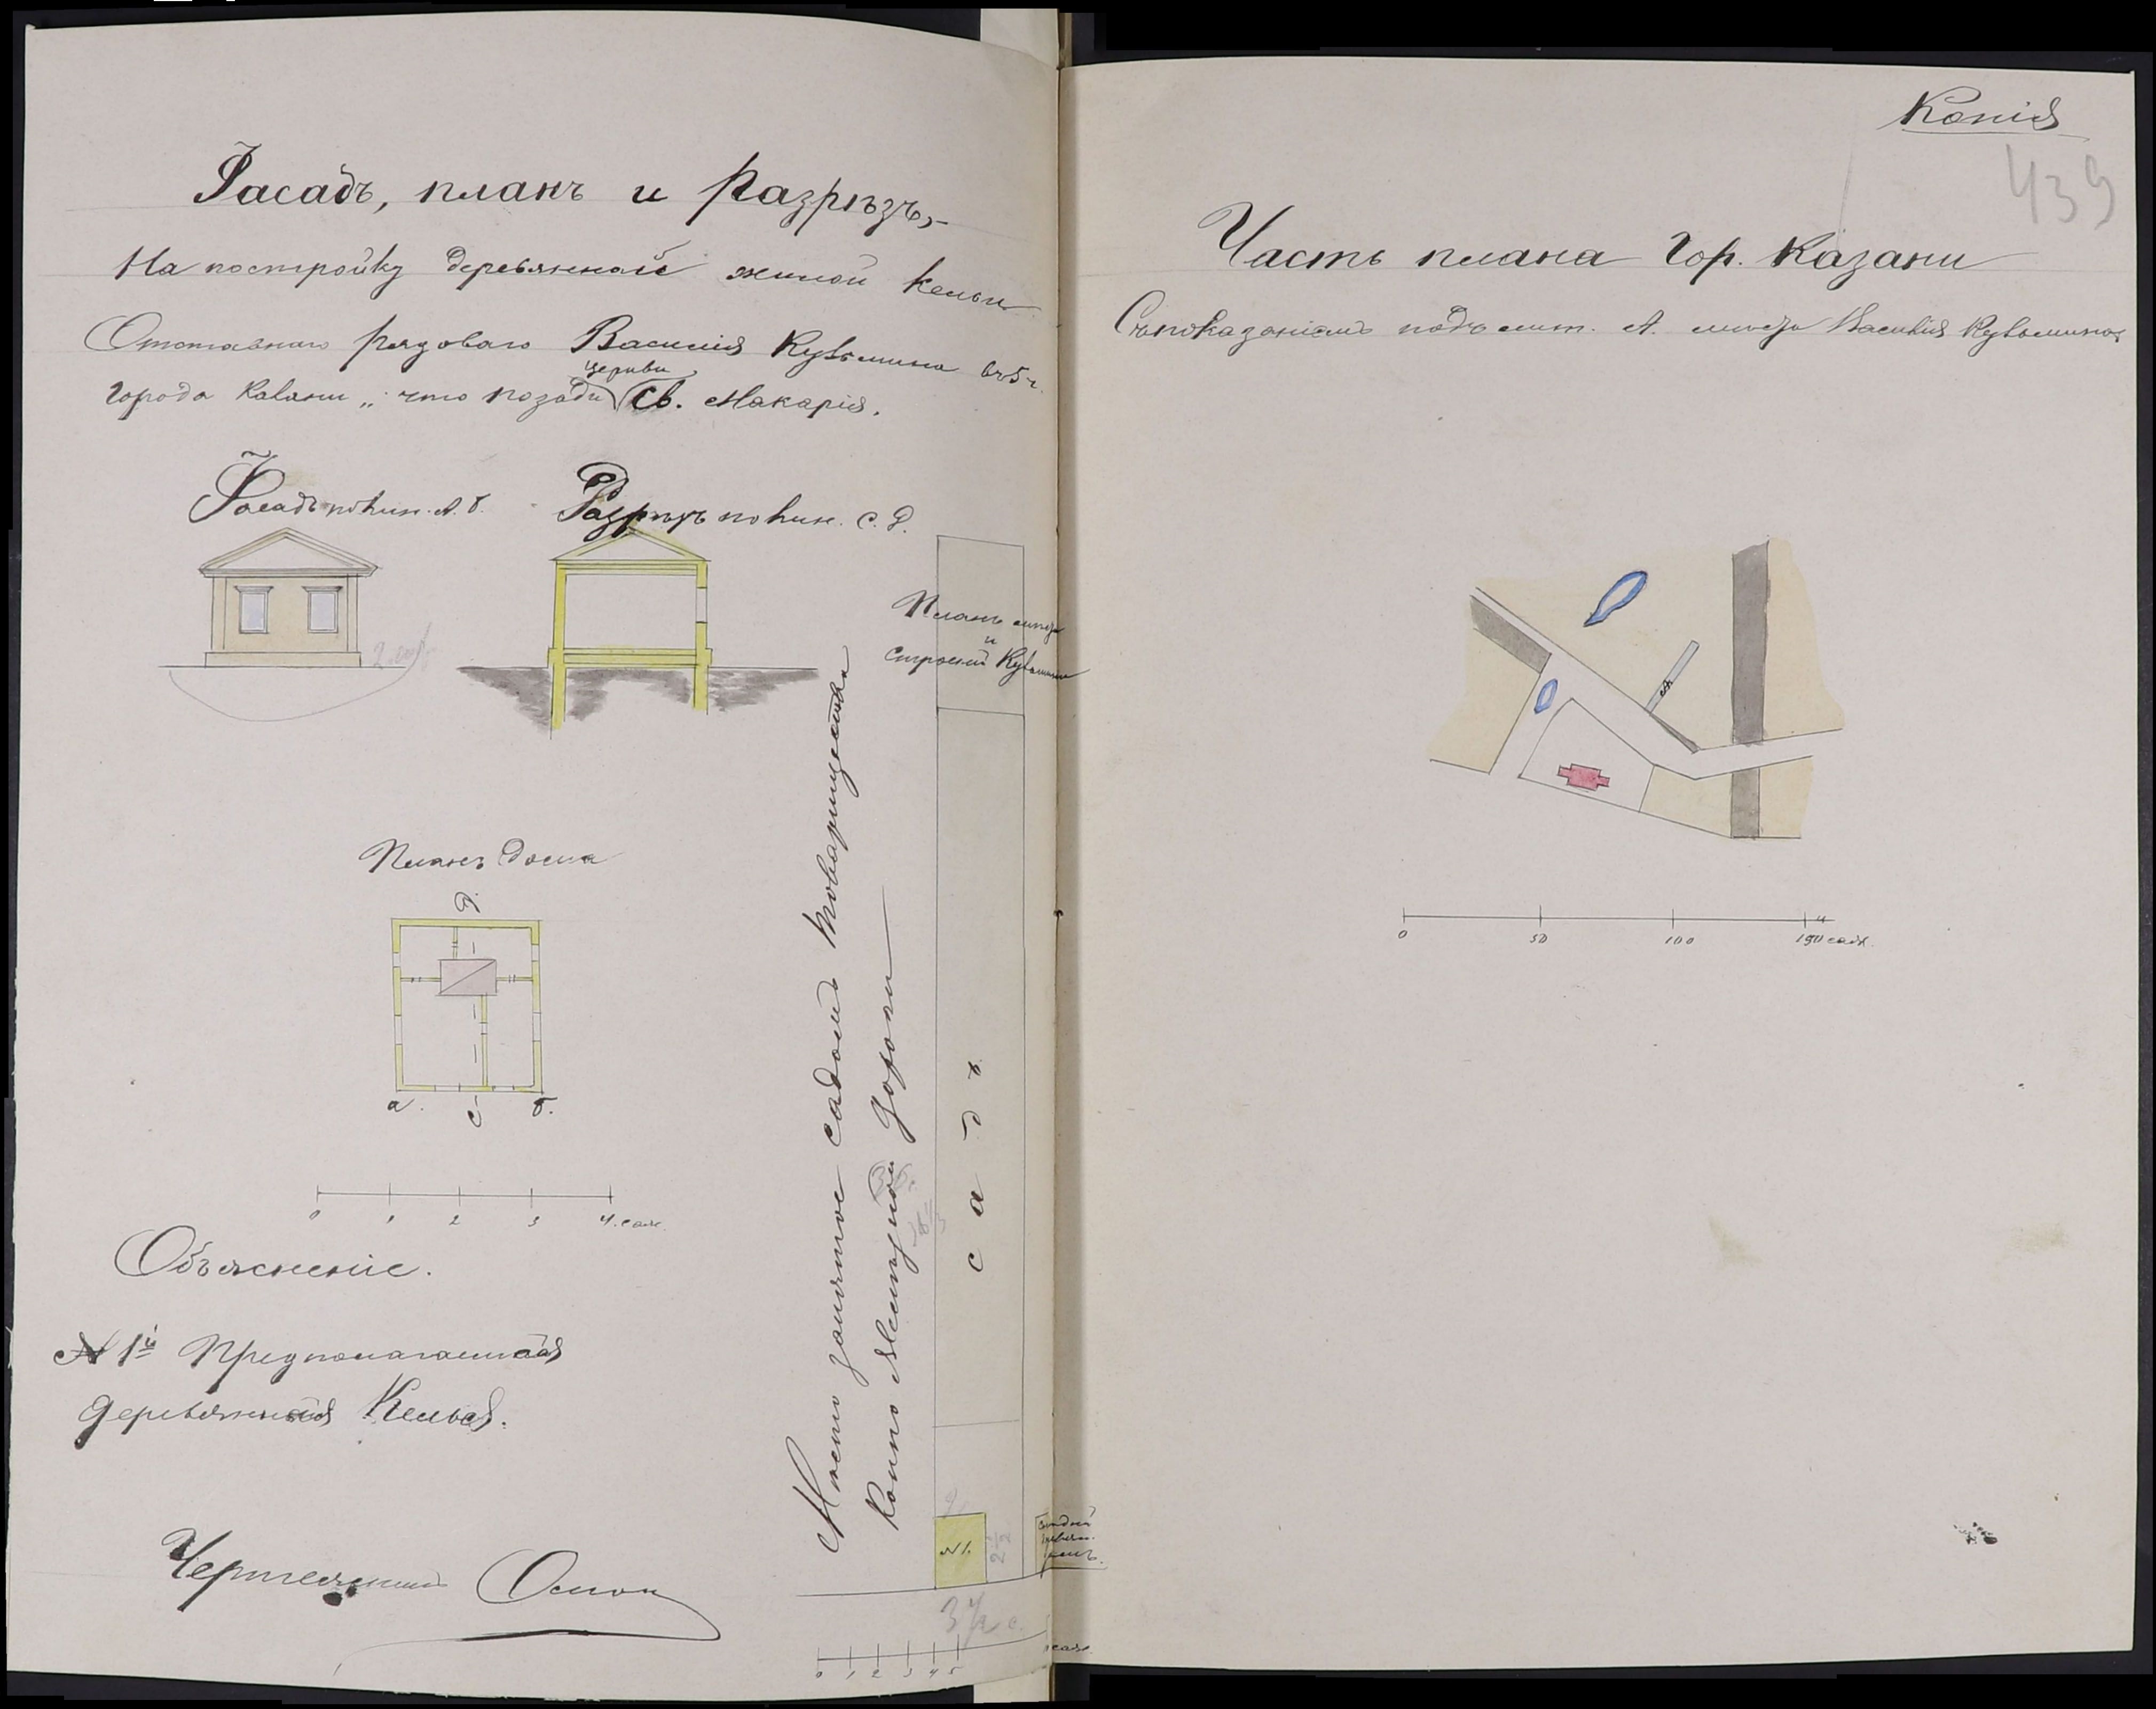 Фасадъ, планъ и разрѣзъ,
На постройку деревянной жилой кельи
Отставнаго рядоваго Василія Кузьмина въ 5 ч.
церкви
города Казани „ что позади Св. Макарія.
Фасадъ по лин. А. Б.
Разрѣзъ по лин. С. Д.
Планъ мѣста
и
строеній Кузьмина
Планъ дома
д.
а.
с
б.
0 1 2 3 4 саж.
Мѣсто занятое садомъ товарищества
садъ
дороги
Объясненіе.
№ 1й Предполагаемая
деревянная Келья.
№ 1.
2 1/2
3 1/2 с.
0 1 2 3 4 5 саж.
Копія
439
Часть плана Гор. Казани
Съ показаніемъ подъ лит. А. мѣста Василія Кузьмина
А
0 50 100 150 саж.